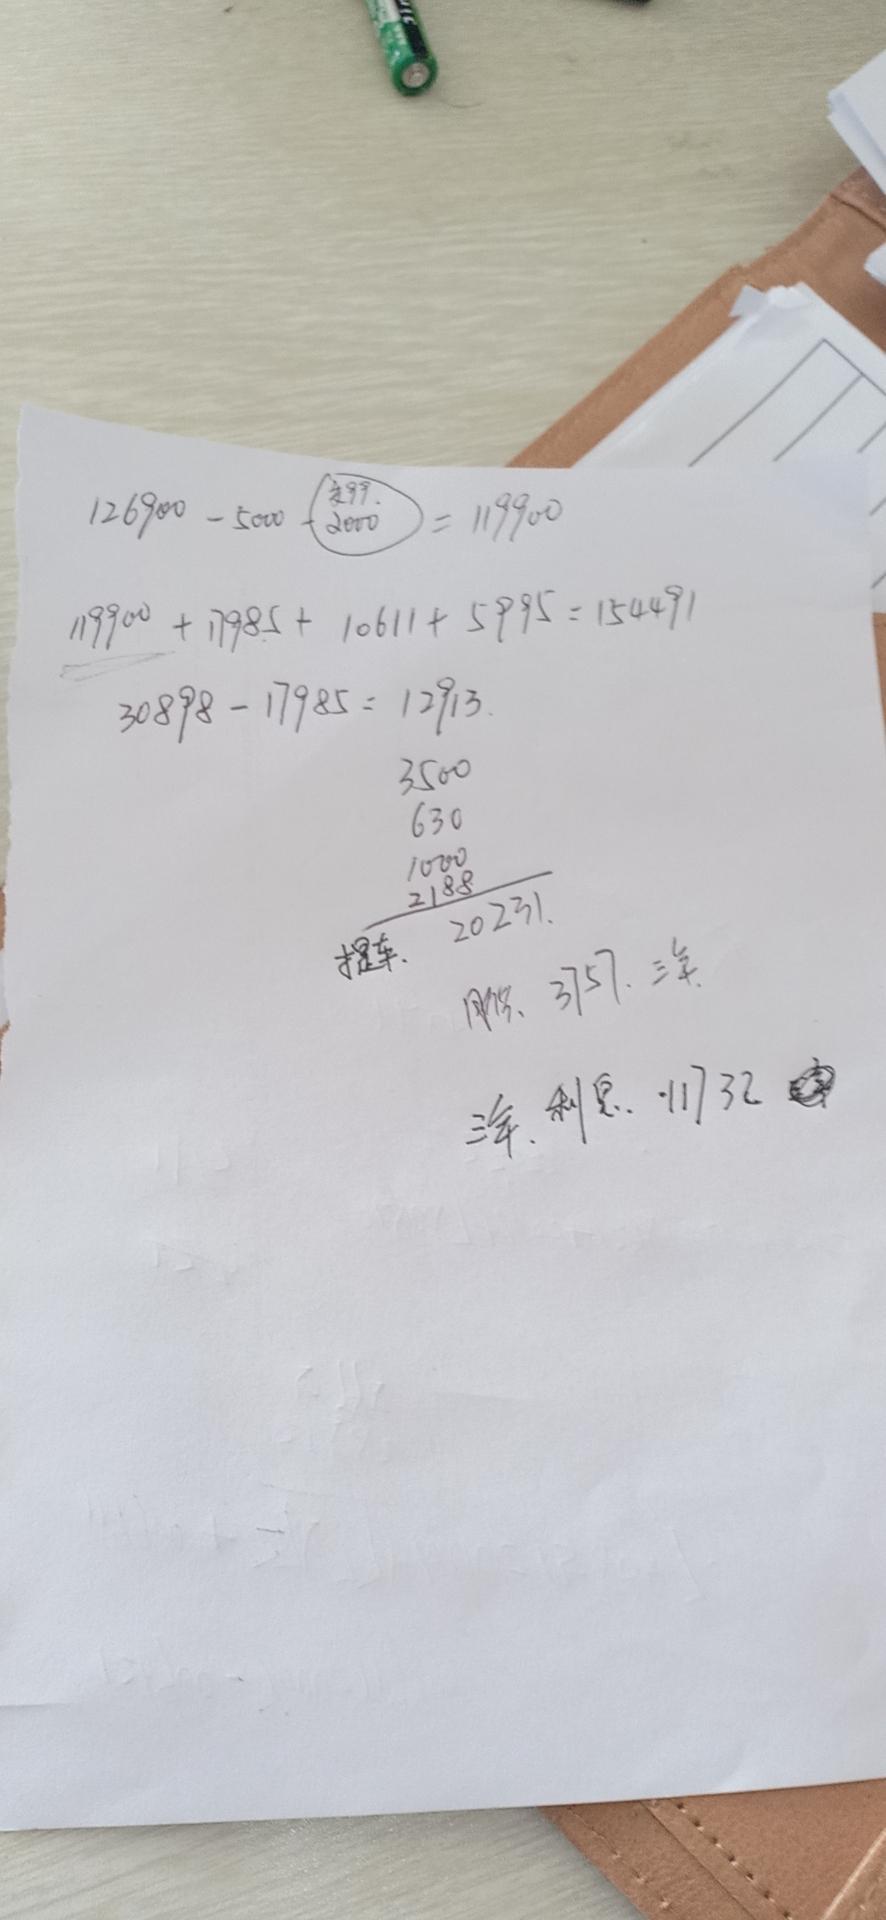 126900 - 5000 - 2000 = 119900
119900 + 17985 + 10611 + 5995 = 154491
30898 - 17985 = 12913.
3500
630
1000
2188
提车、 20231.
月供、 3757. 三年.
三年、利息. 11732